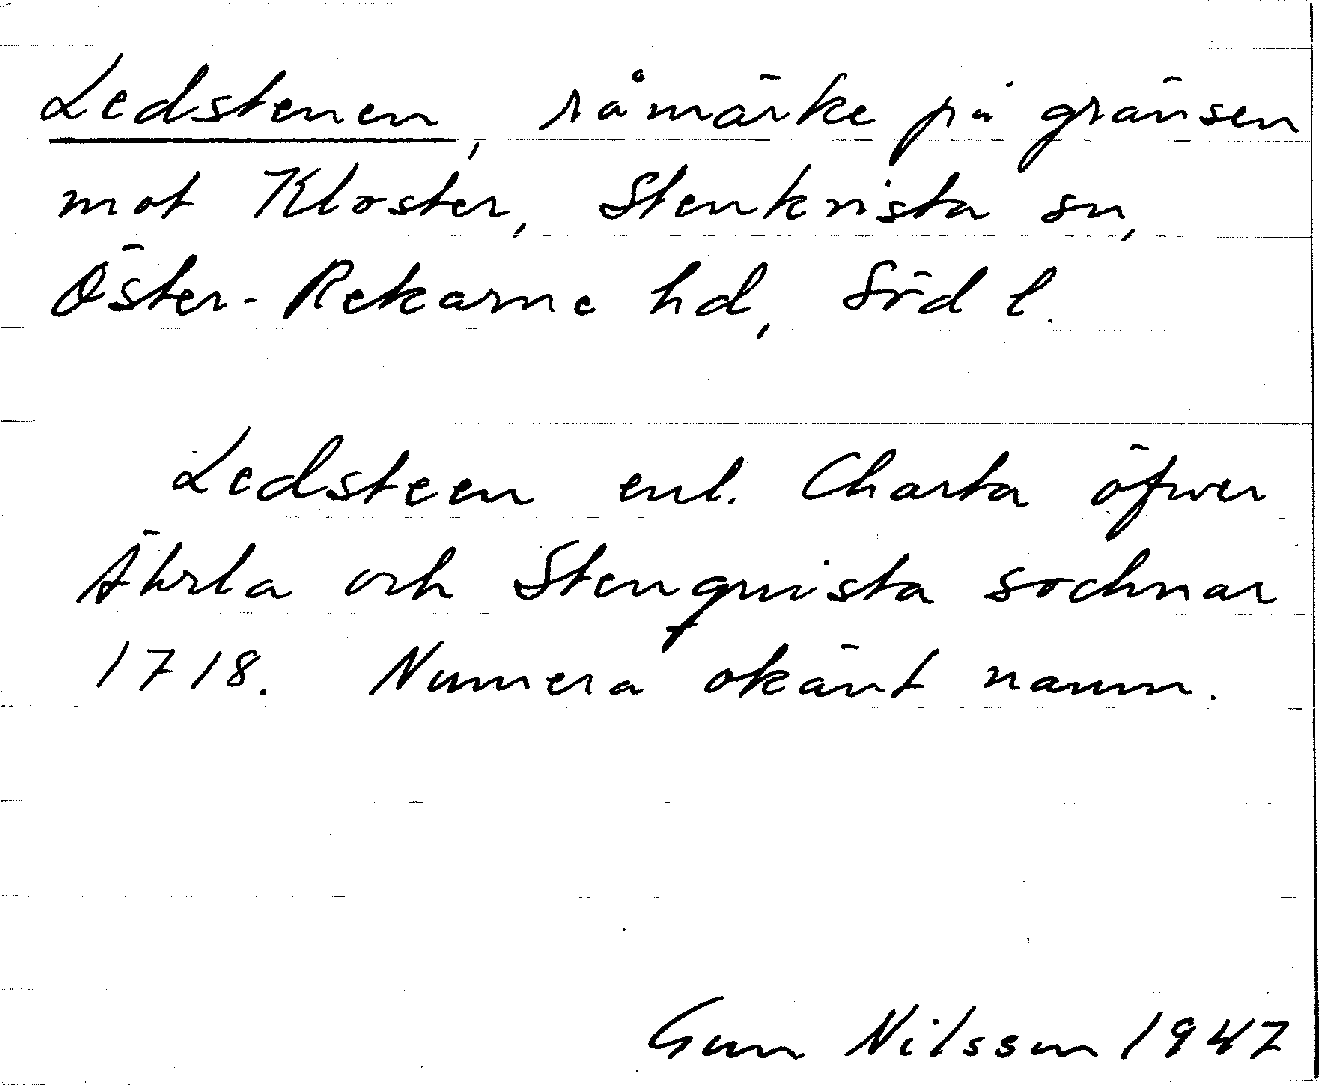 Ledstenen, råmärke på gränsen
mot Kloster, Stenkvista sn,
Öster-Rekarne hd, Söd l.
Ledsteen enl. Charta öfwer
Ährla och Stenqvista sochnar
1718. Numera okänt namn.
Gun Nilsson 1947